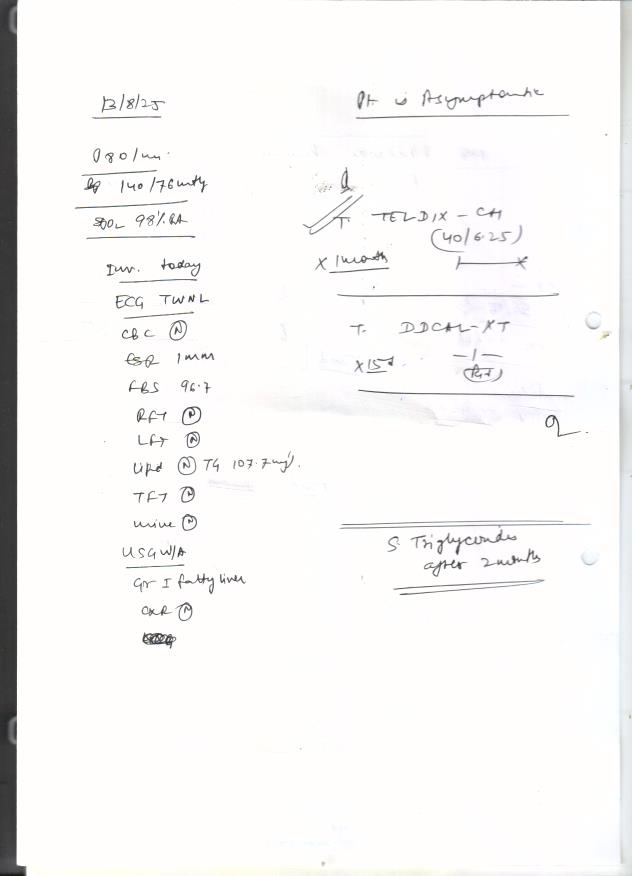 13/8/25
Pt is Asymptomatic
P 80/mi.
Bp 140/76 mmHg
SPO2 98% RA
Inv. today
ECG TWNL
CBC (N)
ESR 1mm
FBS 96.7
RFT (N)
LFT (N)
Lipid (N) TG 107.7 mg/.
TFT (N)
urine (N)
USG W/A
Gr I fatty liver
CXR (N)
T. TELDIX - CH
(40/6.25)
X 1 month
T. DDCAL-XT
X 15d -1-
S. Triglycerides
after 2 months